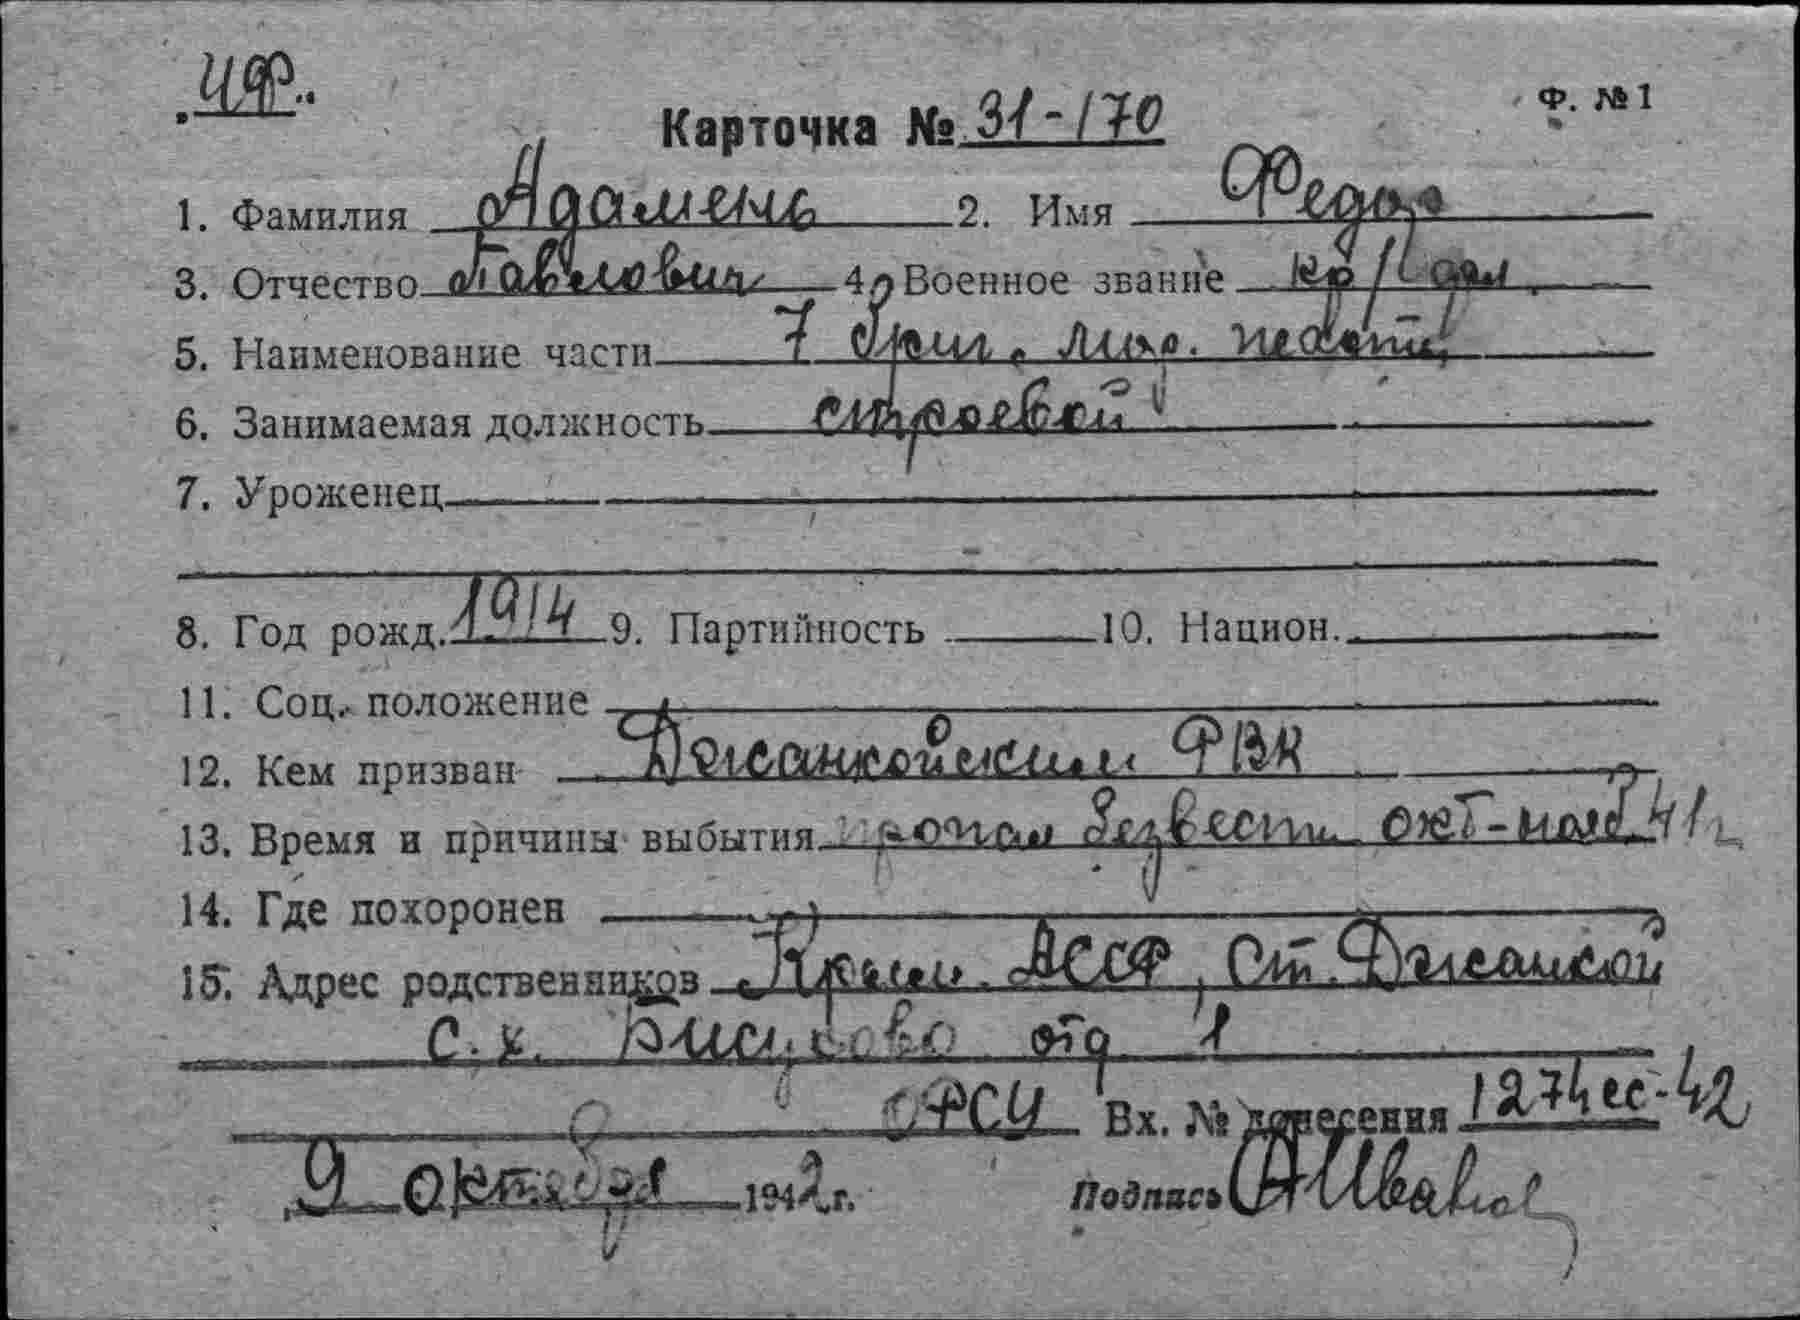 Ф. №1
Карточка № 31-170
1. Фамилия Адамень 2. Имя Федор
3. Отчество Павлович 4. Военное звание кр
5. Наименование части 7 бриг. пехоты
6. Занимаемая должность строевой
7. Уроженец
8. Год рожд. 1914 9. Партийность 10. Национ.
11. Соц. положение
12. Кем призван Джанкойским РВК
13. Время и причины выбытия пропал безвести окт-нояб 41
14. Где похоронен
15. Адрес родственников Крым. АССР, Ст. Джанкой
с.х. отд 1
Вх. № донесения 1274 сс-42
9 октября 1942 г. Подпись